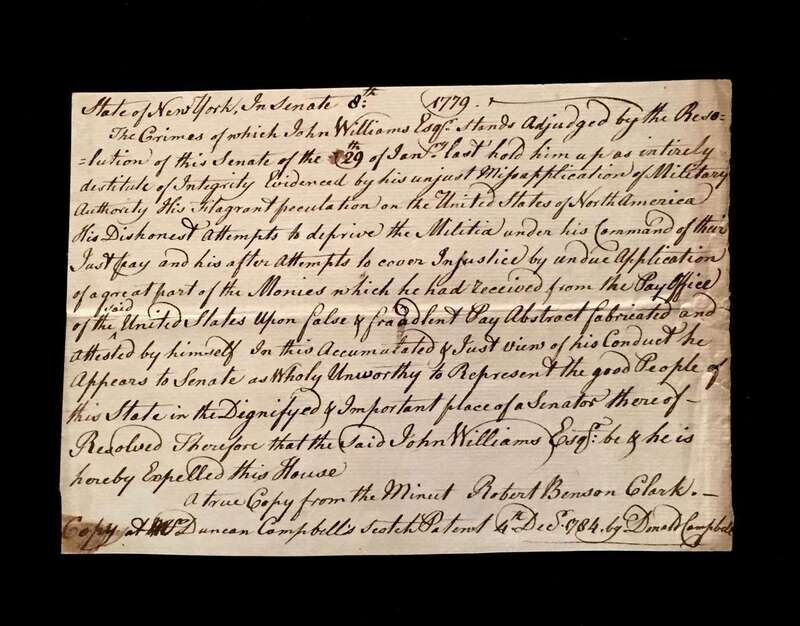 State of New York, In Senate 8:th 1779.
The Crimes of which John Williams Esqr. stands Adjudged by the Reso=
=lution of this Senate of the 29th of Janry last hold him up as intirely
destitute of Integrity Evidenced by his unjust Missapplication of Military
Authority His Flagrant peculation on the United States of North America
His Dishonest Attempts to deprive the Militia under his Command of their
Just pay and his after Attempts to cover Injustice by undue Application
of a great part of the Monies which he had received from the Pay Office
of the said United States Upon false & fraudlent Pay Abstract fabricated and
attested by himself In this Accumulated & Just view of his Conduct he
Appears to Senate as Wholy Unworthy to Represent the good People of
this State in the Dignifyed & Important place of a Senator thereof
Resolved Therefore that the said John Williams Esqr. be & he is
hereby Expelled this House
A true Copy from the Minut Robert Benson Clark. —
Copy at Duncan Campbell's Scotch Patent 4th Decr. 1784. by Donald Campbell